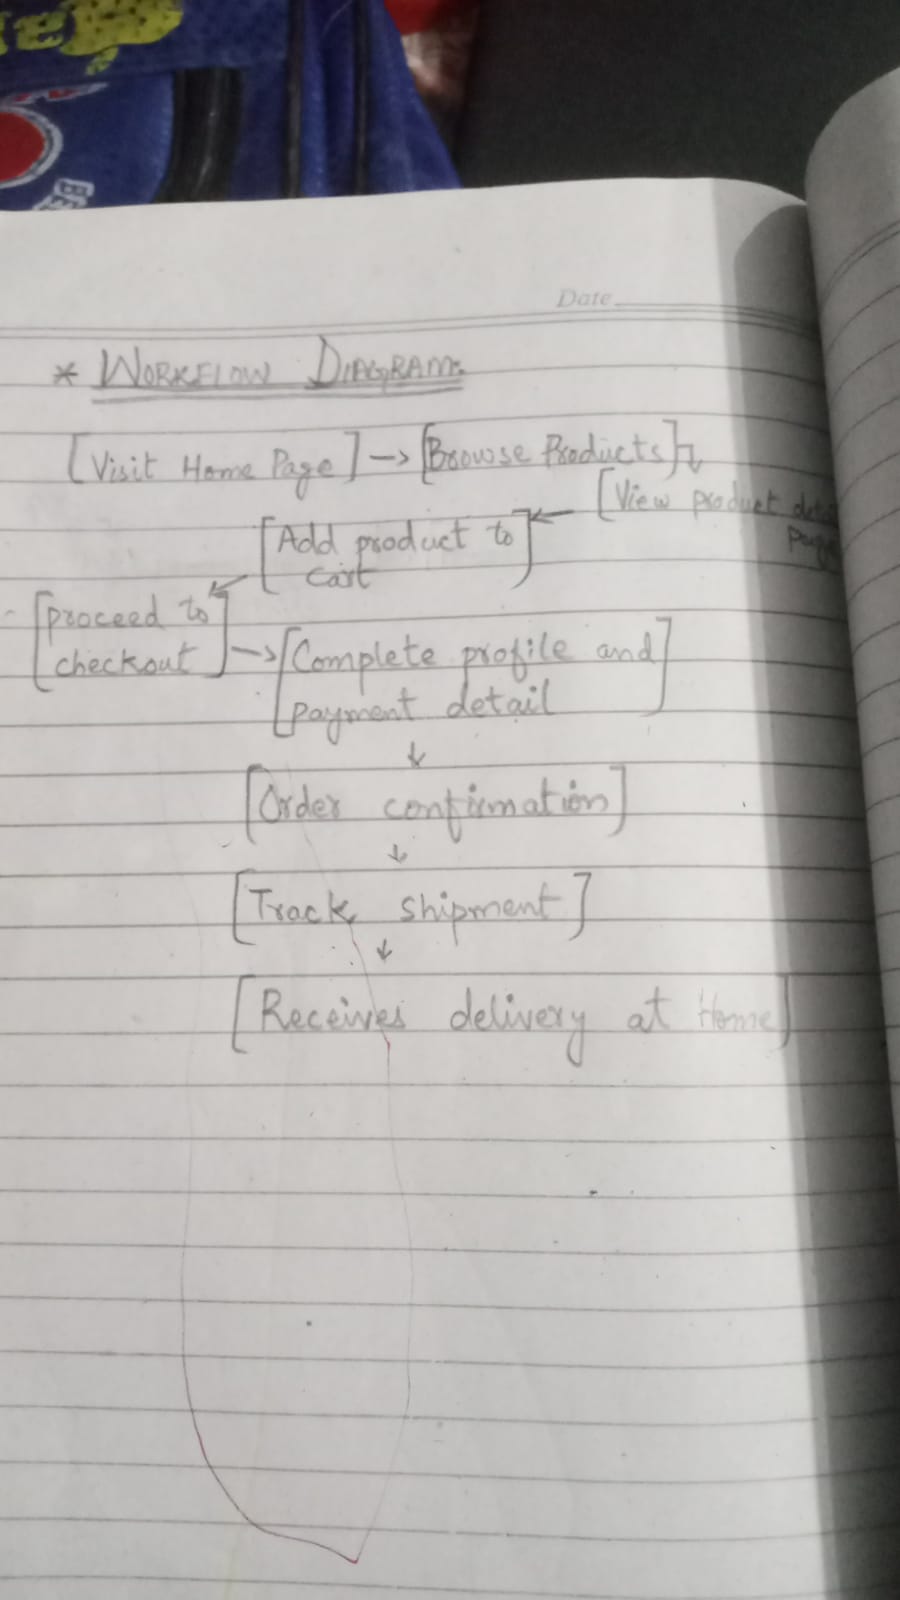 Date
* WORKFLOW DIAGRAM:
[Visit Home Page] → [Browse Products]
[View product
page
[Add product to
cart]
[proceed to
checkout] → [Complete profile and
payment detail]
↓
[Order confirmation]
↓
[Track shipment]
↓
[Receives delivery at Home]